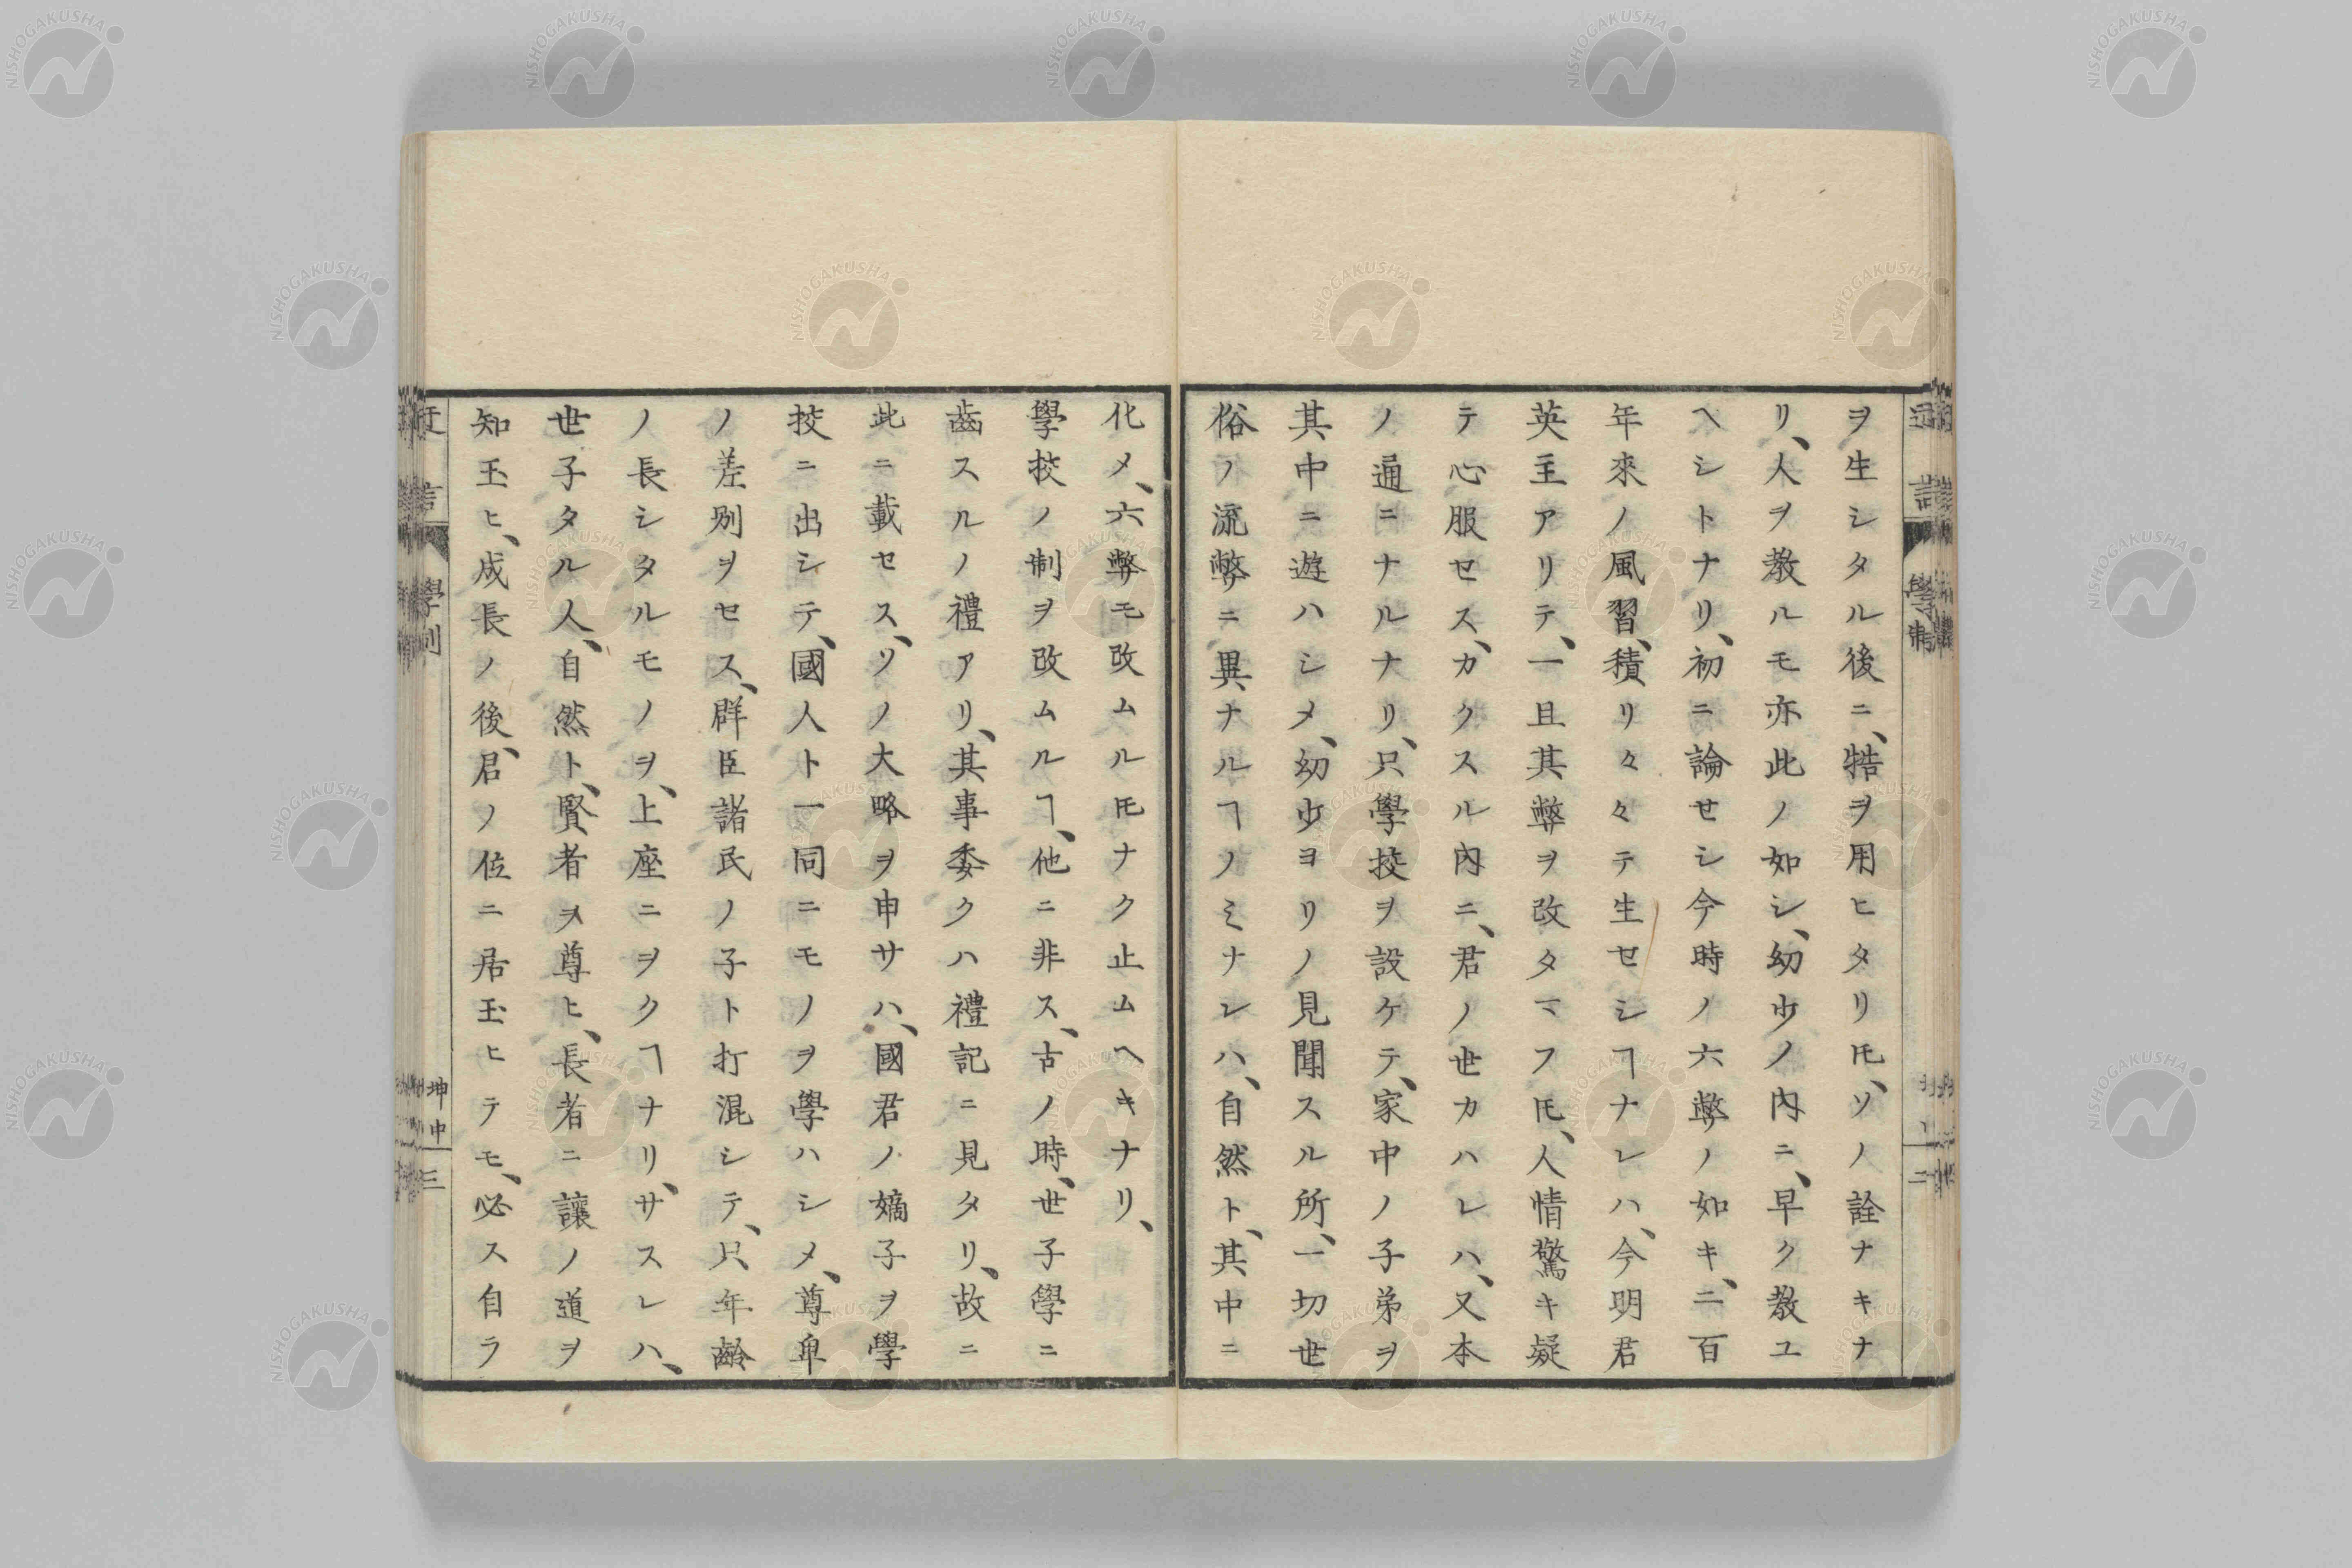 ヲ生シタル後ニ、牿ヲ用ヒタリ𪜈、ソノ詮ナキナ
リ、人ヲ教ルモ亦此ノ如シ、幼少ノ内ニ、早ク教ユ
ヘシトナリ、初ニ論セシ今時ノ六弊ノ如キ、二百
年來ノ風習、積リ々々テ生セシヿナレハ、今明君
英主アリテ、一旦其弊ヲ改タマフ𪜈、人情驚キ疑
テ心服セス、カクスル内ニ、君ノ世カハレハ、又本
ノ通ニナルナリ、只學挍ヲ設ケテ、家中ノ子弟ヲ
其中ニ遊ハシメ、幼少ヨリノ見聞スル所、一切世
俗ノ流弊ニ異ナルヿノミナレハ、自然ト、其中ニ
化メ、六弊モ改ムル𪜈ナク止ムヘキナリ、
學挍ノ制ヲ改ムルヿ、他ニ非ス、古ノ時、世子學ニ
齒スルノ禮アリ、其事委クハ禮記ニ見タリ、故ニ
此ニ載セス、ソノ大略ヲ申サハ、國君ノ嫡子ヲ學
挍ニ出シテ、國人ト一同ニモノヲ學ハシメ、尊卑
ノ差別ヲセス、群臣諸民ノ子ト打混シテ、只年齡
ノ長シタルモノヲ、上座ニヲクヿナリ、サスレハ、
世子タル人、自然ト、賢者ヲ尊ヒ、長者ニ讓ノ道ヲ
知玉ヒ、成長ノ後、君ノ位ニ居玉ヒテモ、必ス自ラ
學制
坤中
三
NISHOGAKUSHA